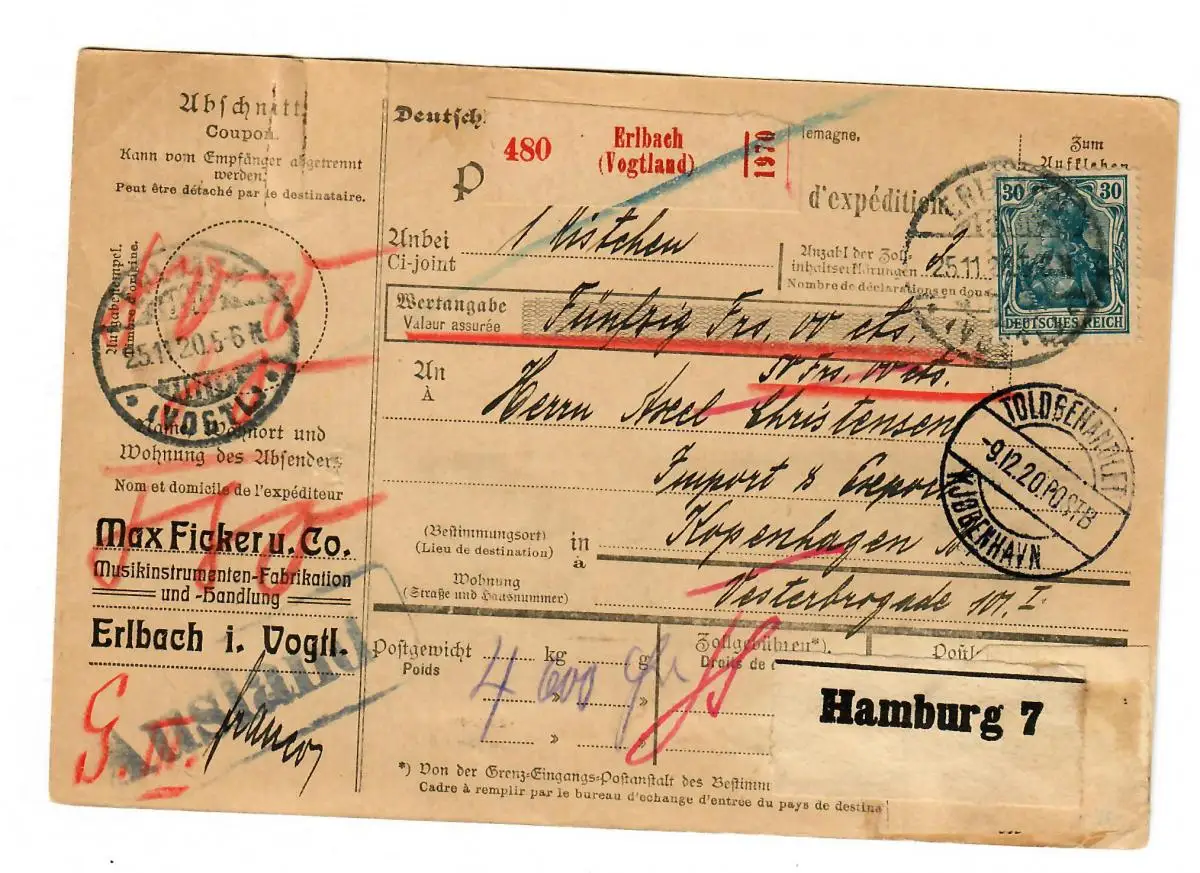 Abschnitt
Coupon.
Kann vom Empfänger abgetrennt
werden.
Peut être détaché par le destinataire.
Ausgabestempel.
Timbre
25.11.20.5-6 N
(VOGTL.)
Name, Wohnort und
Wohnung des Absenders
Nom et domicile de l'expéditeur
Max Ficker u. Co.
Musikinstrumenten-Fabrikation
und -Handlung
Erlbach i. Vogtl.
Ausland
franco
Deutsch
P
480
Erlbach
(Vogtland)
1970
lemagne,
d'expédition
Zum
Aufkleben
30 30
DEUTSCHES REICH
25.11.
Anbei
Ci-joint
1 Kistchen
Anzahl der Zoll-
inhaltserklärungen
Nombre de déclarations en doua
2
Wertangabe
Valeur assurée
Fünfzig Frs. 00 cts.
50 Frs. 00 cts.
An
À
Herrn Axel Christensen
Import & Export
(Bestimmungsort)
(Lieu de destination)
in
a
Kopenhagen
Wohnung
(Straße und Hausnummer)
Vesterbrogade 101. I.
TOLDBEHANDLET
-9.12.20.POST.B
KJØBENHAVN
Postgewicht
Poids
kg
g
4 600
» »
» »
Zollgebühren*).
Droits de
Hamburg 7
*) Von der Grenz-Eingangs-Postanstalt des Bestimm
Cadre à remplir par le bureau d'echange d'entrée du pays de destina